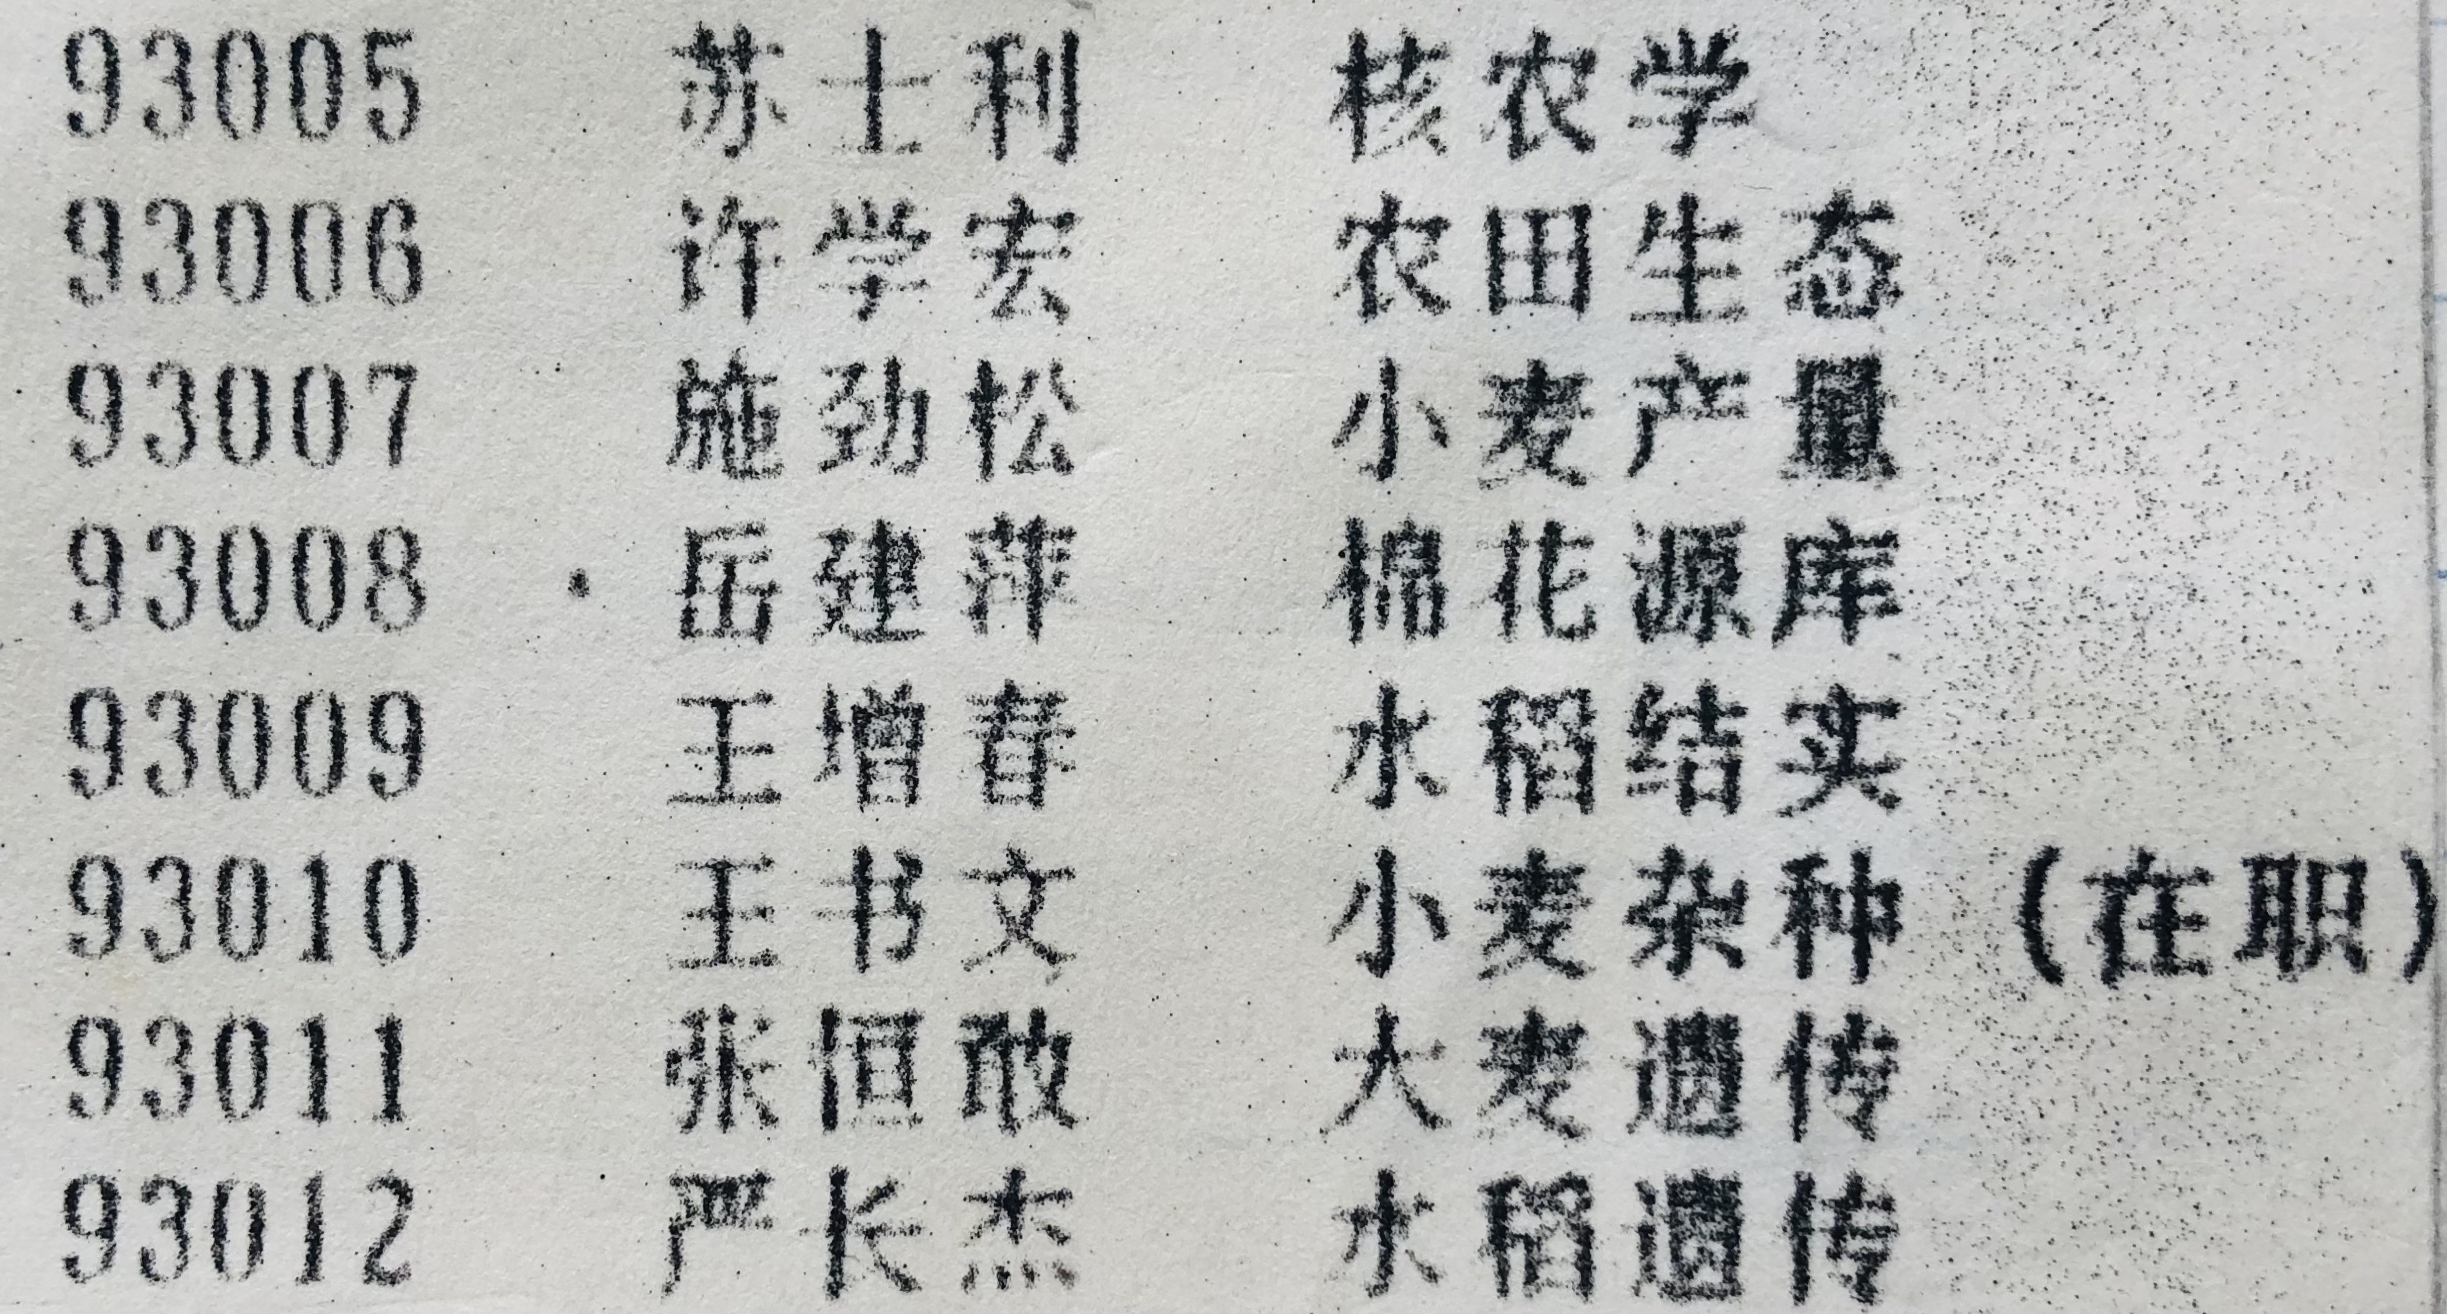 93005 苏士利 核农学
93006 许学宏 农田生态
93007 施劲松 小麦产量
93008 岳建萍 棉花源库
93009 王增春 水稻结实
93010 王书文 小麦杂种 (在职)
93011 张恒敢 大麦遗传
93012 严长杰 水稻遗传